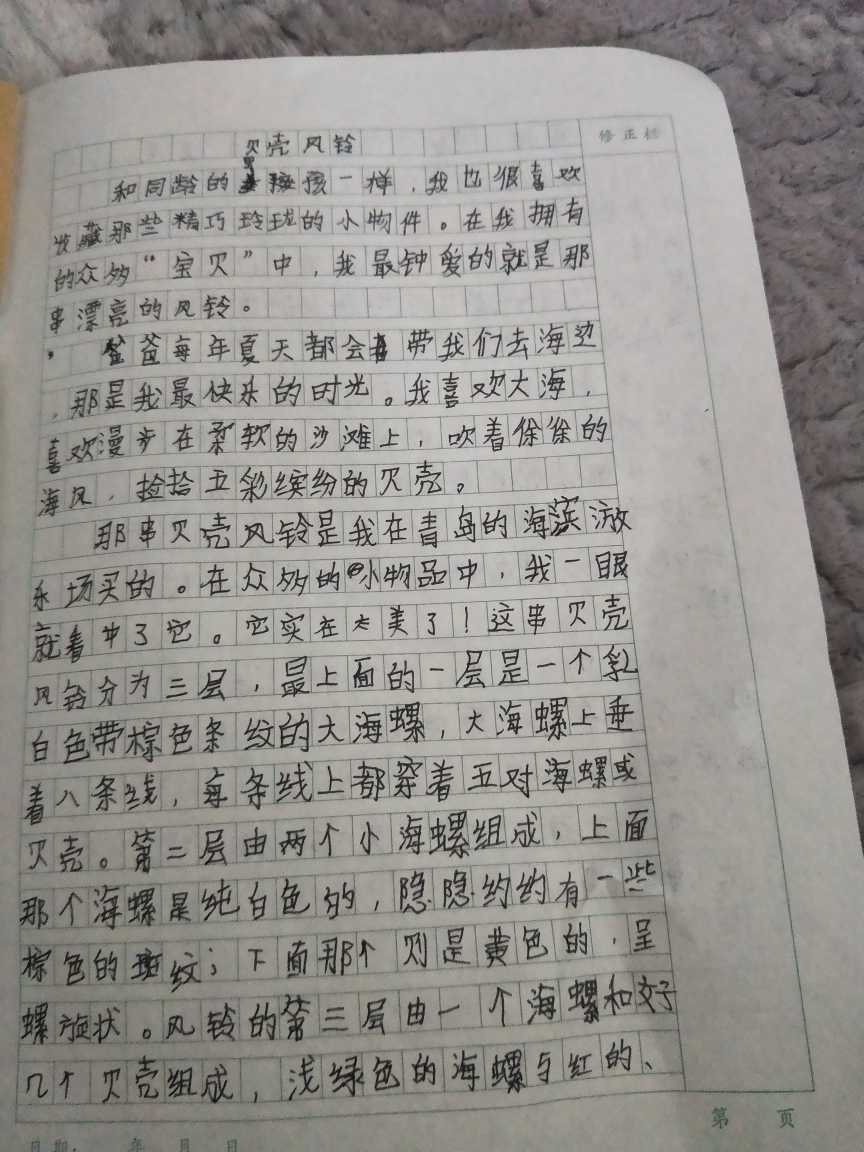 贝壳风铃
修正栏
和同龄的男孩一样，我也很喜欢
收藏那些精巧玲珑的小物件。在我拥有
的众多“宝贝”中，我最钟爱的就是那
串漂亮的风铃。
爸爸每年夏天都会带我们去海边
，那是我最快乐的时光。我喜欢大海，
喜欢漫步在柔软的沙滩上，吹着徐徐的
海风，捡拾五彩缤纷的贝壳。
那串贝壳风铃是我在青岛的海滨游
乐场买的。在众多的小物品中，我一眼
就看中了它。它实在太美了！这串贝壳
风铃分为三层，最上面的一层是一个乳
白色带棕色条纹的大海螺，大海螺上垂
着八条线，每条线上都穿着五对海螺或
贝壳。第二层由两个小海螺组成，上面
那个海螺是纯白色的，隐隐约约有一些
棕色的斑纹；下面那个则是黄色的，呈
螺旋状。风铃的第三层由一个海螺和好
几个贝壳组成，浅绿色的海螺与红的、
第 页
日期： 年 月 日